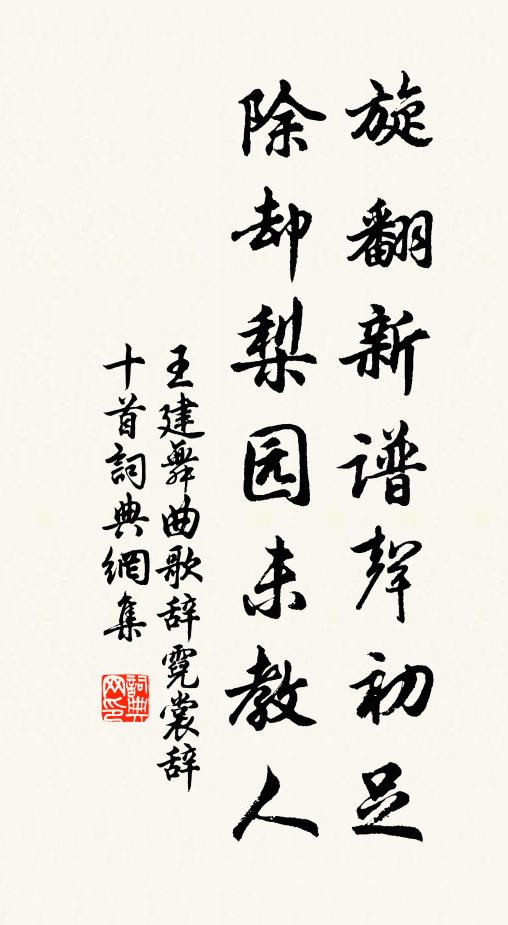 旋翻新谱聲初足
除却梨园未教人
王建舞曲歌辞霓裳辞
十首詞典網集
詞典网印